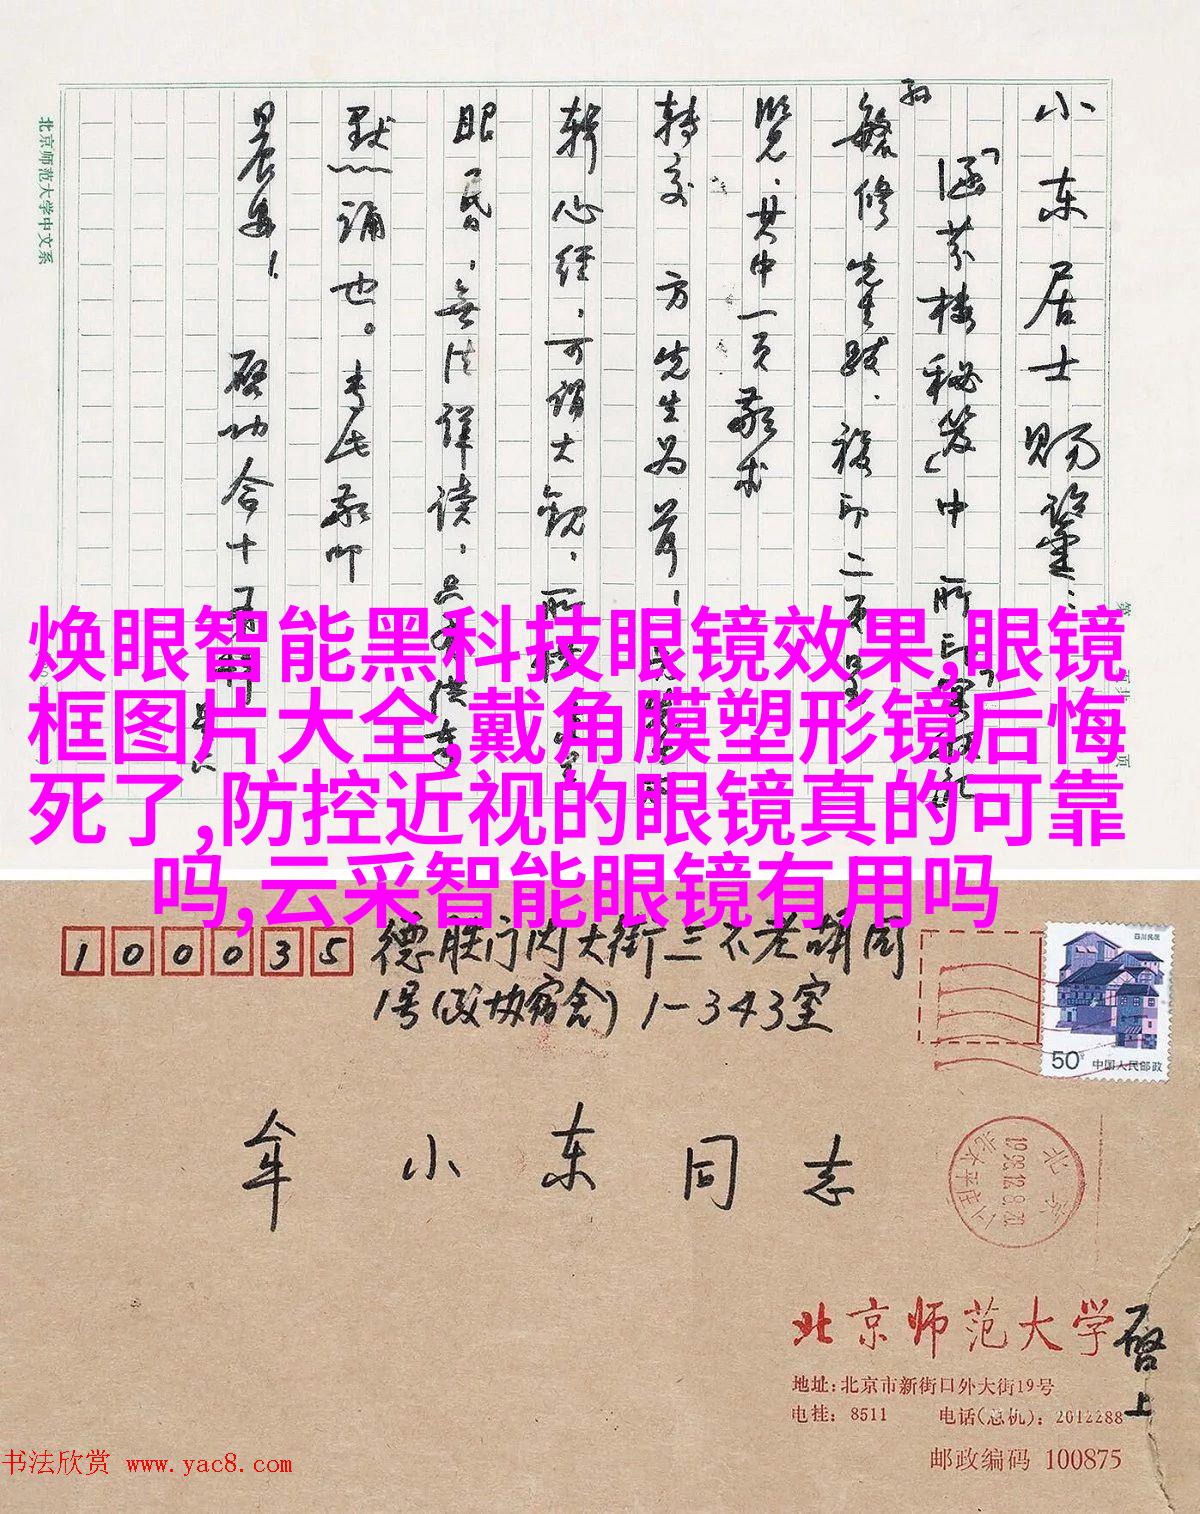 小东居士賜鑒：
「涵芬楼秘笈」中所
繁修先生跋．複印二页呈
覽．其中一页敬求
转交 方先生为荷！
辑心经，可谓大觀，所
眼昏，無法详读，只
默诵也。专此敬叩
晨安！ 啓功合十
北京师范大学中文系
焕眼智能黑科技眼镜效果,眼镜
框图片大全,戴角膜塑形镜后悔
死了,防控近视的眼镜真的可靠
吗,云采智能眼镜有用吗
100035
德胜门内大街三不老胡同
1号(政协宿舍) 1-343室
四川民居
50分
中国人民邮政
牟小东同志
北京
北京师范大学 啓上
地址:北京市新街口外大街19号
电挂: 8511 电话(总机): 2012288
邮政编码 100875
书法欣赏 www.yac8.com